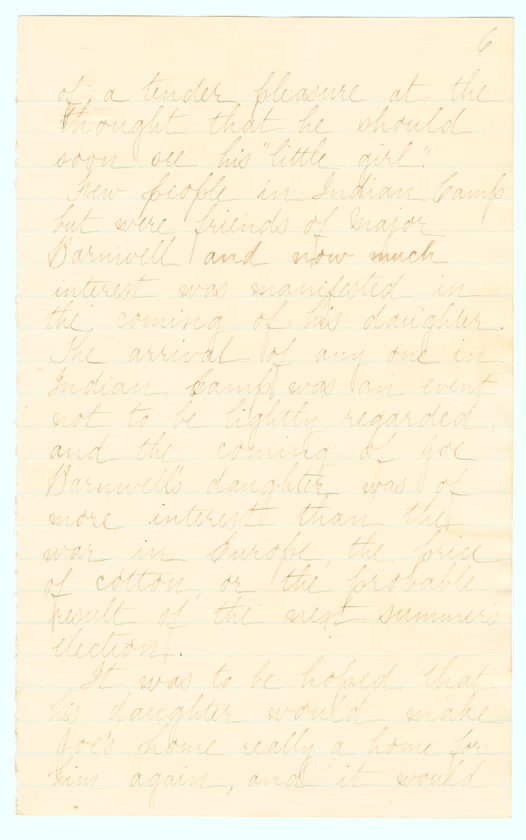 6
of a tender pleasure at the
thought that he should
soon see his "little girl".
Few people in Indian Camp
but were friends of Major
Barnwell and now much
interest was manifested in
the coming of his daughter.
The arrival of any one in
Indian Camp, was an event
not to be lightly regarded,
and the coming of Joe
Barnwell's daughter was of
more interest than the
war in Europe, the price
of cotton, or the probable
result of the next summer's
election.
It was to be hoped that
his daughter would make
Joe's home really a home for
him again, and it would